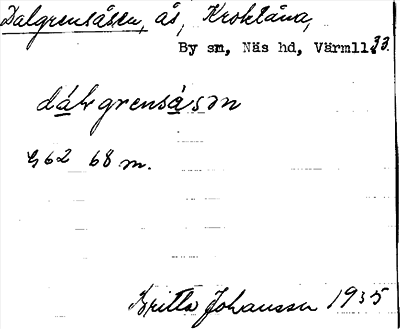 Dalgrensåsen, ås, Kroklåna,
By sn, Näs hd, Värmll. 33.
dálvgrensásən
G62 68 m.
Britta Johansson 1935